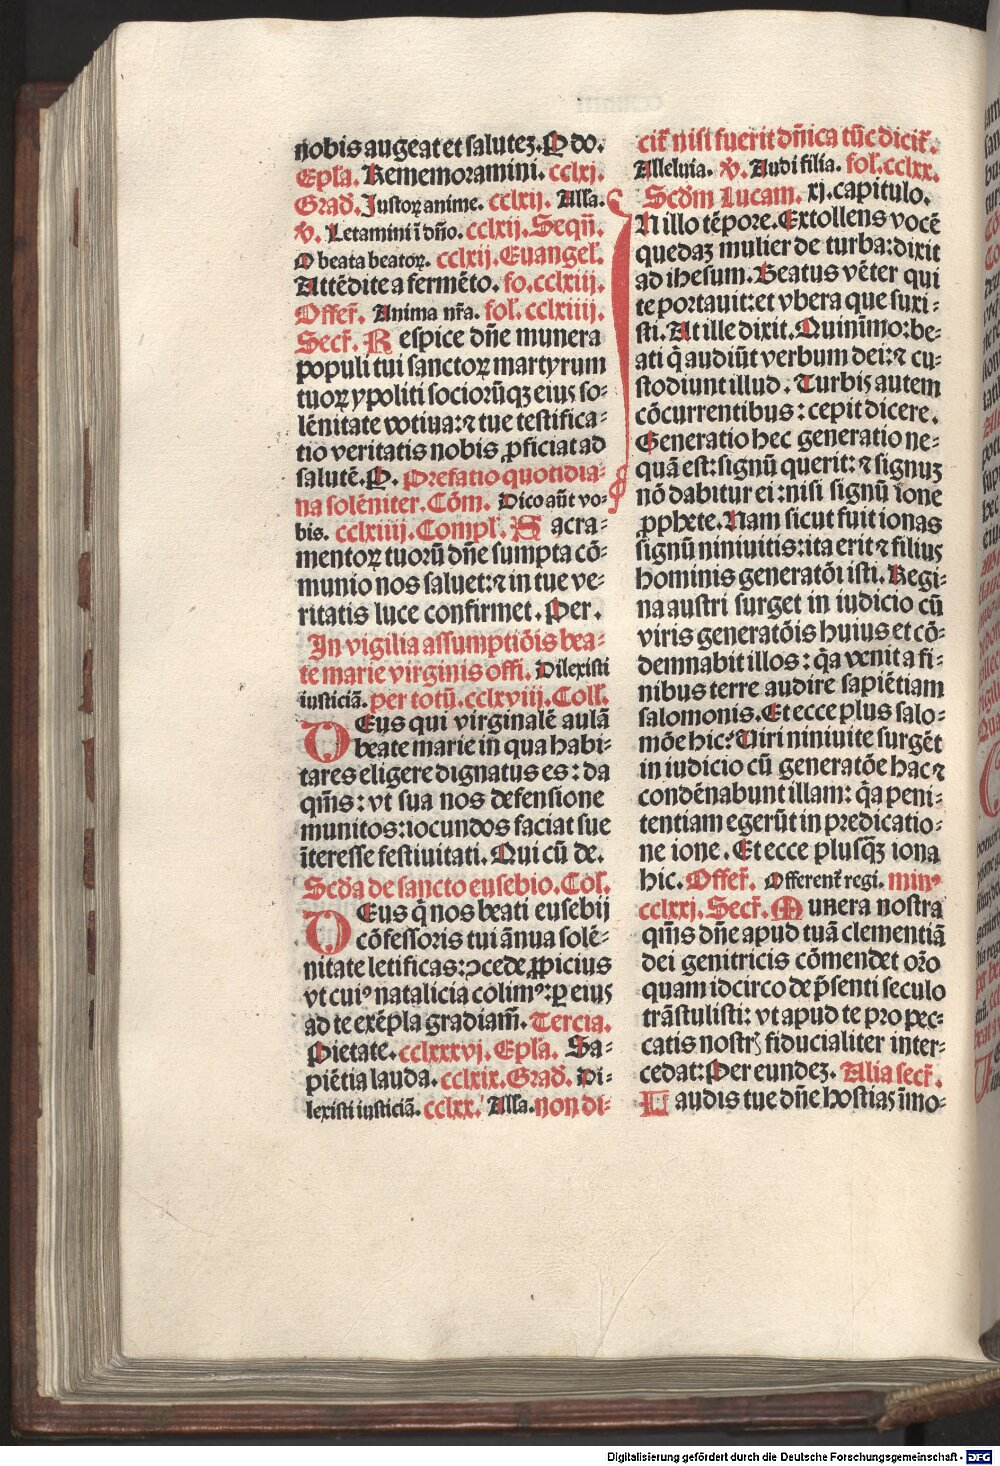 nobis augeat et salutez. P do.
Epla. Rememoramini. cclxj.
Grad̄. Justoꝝ anime. cclxij. Alla.
℣. Letamini ī dn̄o. cclxij. Seqn̄.
O beata beatoꝝ. cclxij. Euangel̄.
Attēdite a fermēto. fo. cclxiij.
Offer̄. Anima nr̄a. fol̄. cclxiiij.
Secr̄. Respice dn̄e munera
populi tui sanctoꝝ martyrum
tuoꝝ ypoliti sociorūqꝫ eius so-
lēnitate votiua: ⁊ tue testifica-
tio veritatis nobis ꝓficiat ad
salutē. P. Prefatio quotidia-
na solēniter. Cōm. Dico aūt vo-
bis. cclxiiij. Compl̄. Sacra-
mentoꝝ tuorū dn̄e sumpta cō-
munio nos saluet: ⁊ in tue ve-
ritatis luce confirmet. Per.
In vigilia assumptiōis bea-
te marie virginis offi. Dilexisti
iusticiā. per totū. cclxviij. Coll.
DEus qui virginalē aulā
beate marie in qua habi-
tares eligere dignatus es: da
qm̄s: vt sua nos defensione
munitos: iocundos faciat sue
īteresse festiuitati. Qui cū de.
Sed̄a de sancto eusebio. Col.
DEus q̄ nos beati eusebij
cōfessoris tui ānua solē-
nitate letificas: ↄcede ꝓpicius
vt cuiꝰ natalicia colimꝰ: ꝑ eius
ad te exēpla gradiam̄. Tercia.
Pietate. cclxxxvj. Epl̄a. Sa-
piētia lauda. cclxix. Grad̄. Di-
lexisti iusticiā. cclxx. Alla. non di-
cit̄ nisi fuerit dn̄ica tūc dicit̄.
Alleluia. ℣. Audi filia. fol̄. cclxx.
Scd̄m Lucam. xj. capitulo.
In illo tēpore. Extollens vocē
quedaꝫ mulier de turba: dixit
ad ihesum. Beatus vēter qui
te portauit: et vbera que suxi-
sti. At ille dixit. Quinīmo: be-
ati q̄ audiūt verbum dei: ⁊ cu-
stodiunt illud. Turbis autem
cōcurrentibus: cepit dicere.
Generatio hec generatio ne-
quā est: signū querit: ⁊ signuꝫ
nō dabitur ei: nisi signū ione
ꝓphete. Nam sicut fuit ionas
signū niniuitis: ita erit ⁊ filius
hominis generatōi isti. Regi-
na austri surget in iudicio cū
viris generatōis huius et cō-
demnabit illos: q̄a venit a fi-
nibus terre audire sapiētiam
salomonis. Et ecce plus salo-
mōe hic. Viri niniuite surgēt
in iudicio cū generatōe hac ⁊
condēnabunt illam: q̄a peni-
tentiam egerūt in predicatio-
ne ione. Et ecce plusq̄ꝫ iona
hic. Offer̄. Offerent̄ regi. minꝰ
cclxxj. Secr̄. Munera nostra
qm̄s dn̄e apud tuā clementiā
dei genitricis cōmendet or̄o
quam idcirco de p̄senti seculo
trāstulisti: vt apud te pro pec-
catis nostrꝭ fiducialiter inter-
cedat: Per eundeꝫ. Alia secr̄.
Laudis tue dn̄e hostias īmo-
Digitalisierung gefördert durch die Deutsche Forschungsgemeinschaft - DFG